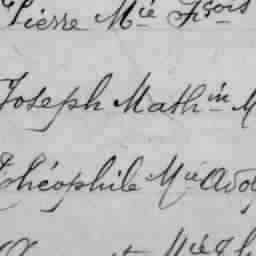 Pierre Mie Fçois
Joseph Mathin M
Théophile Mie Ado